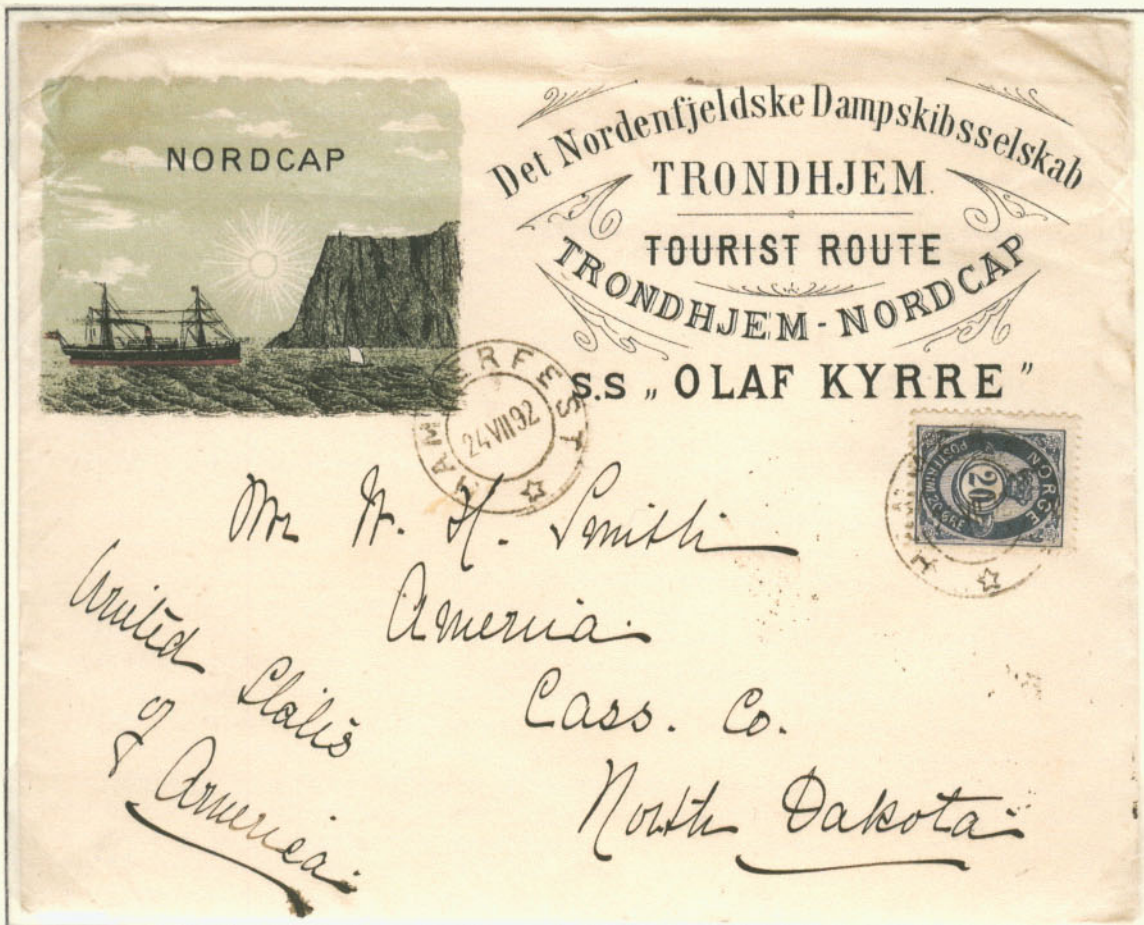 NORDCAP
Det Nordenfjeldske Dampskibsselskab
TRONDHJEM.
TOURIST ROUTE
TRONDHJEM - NORDCAP
S.S „ OLAF KYRRE ”
HAMMERFEST
24 VII 92
NORGE
POSTFRIM. 20 ØRE
20
Mr W. H. Smith
America.
Cass. Co.
North Dakota
United States
of America.